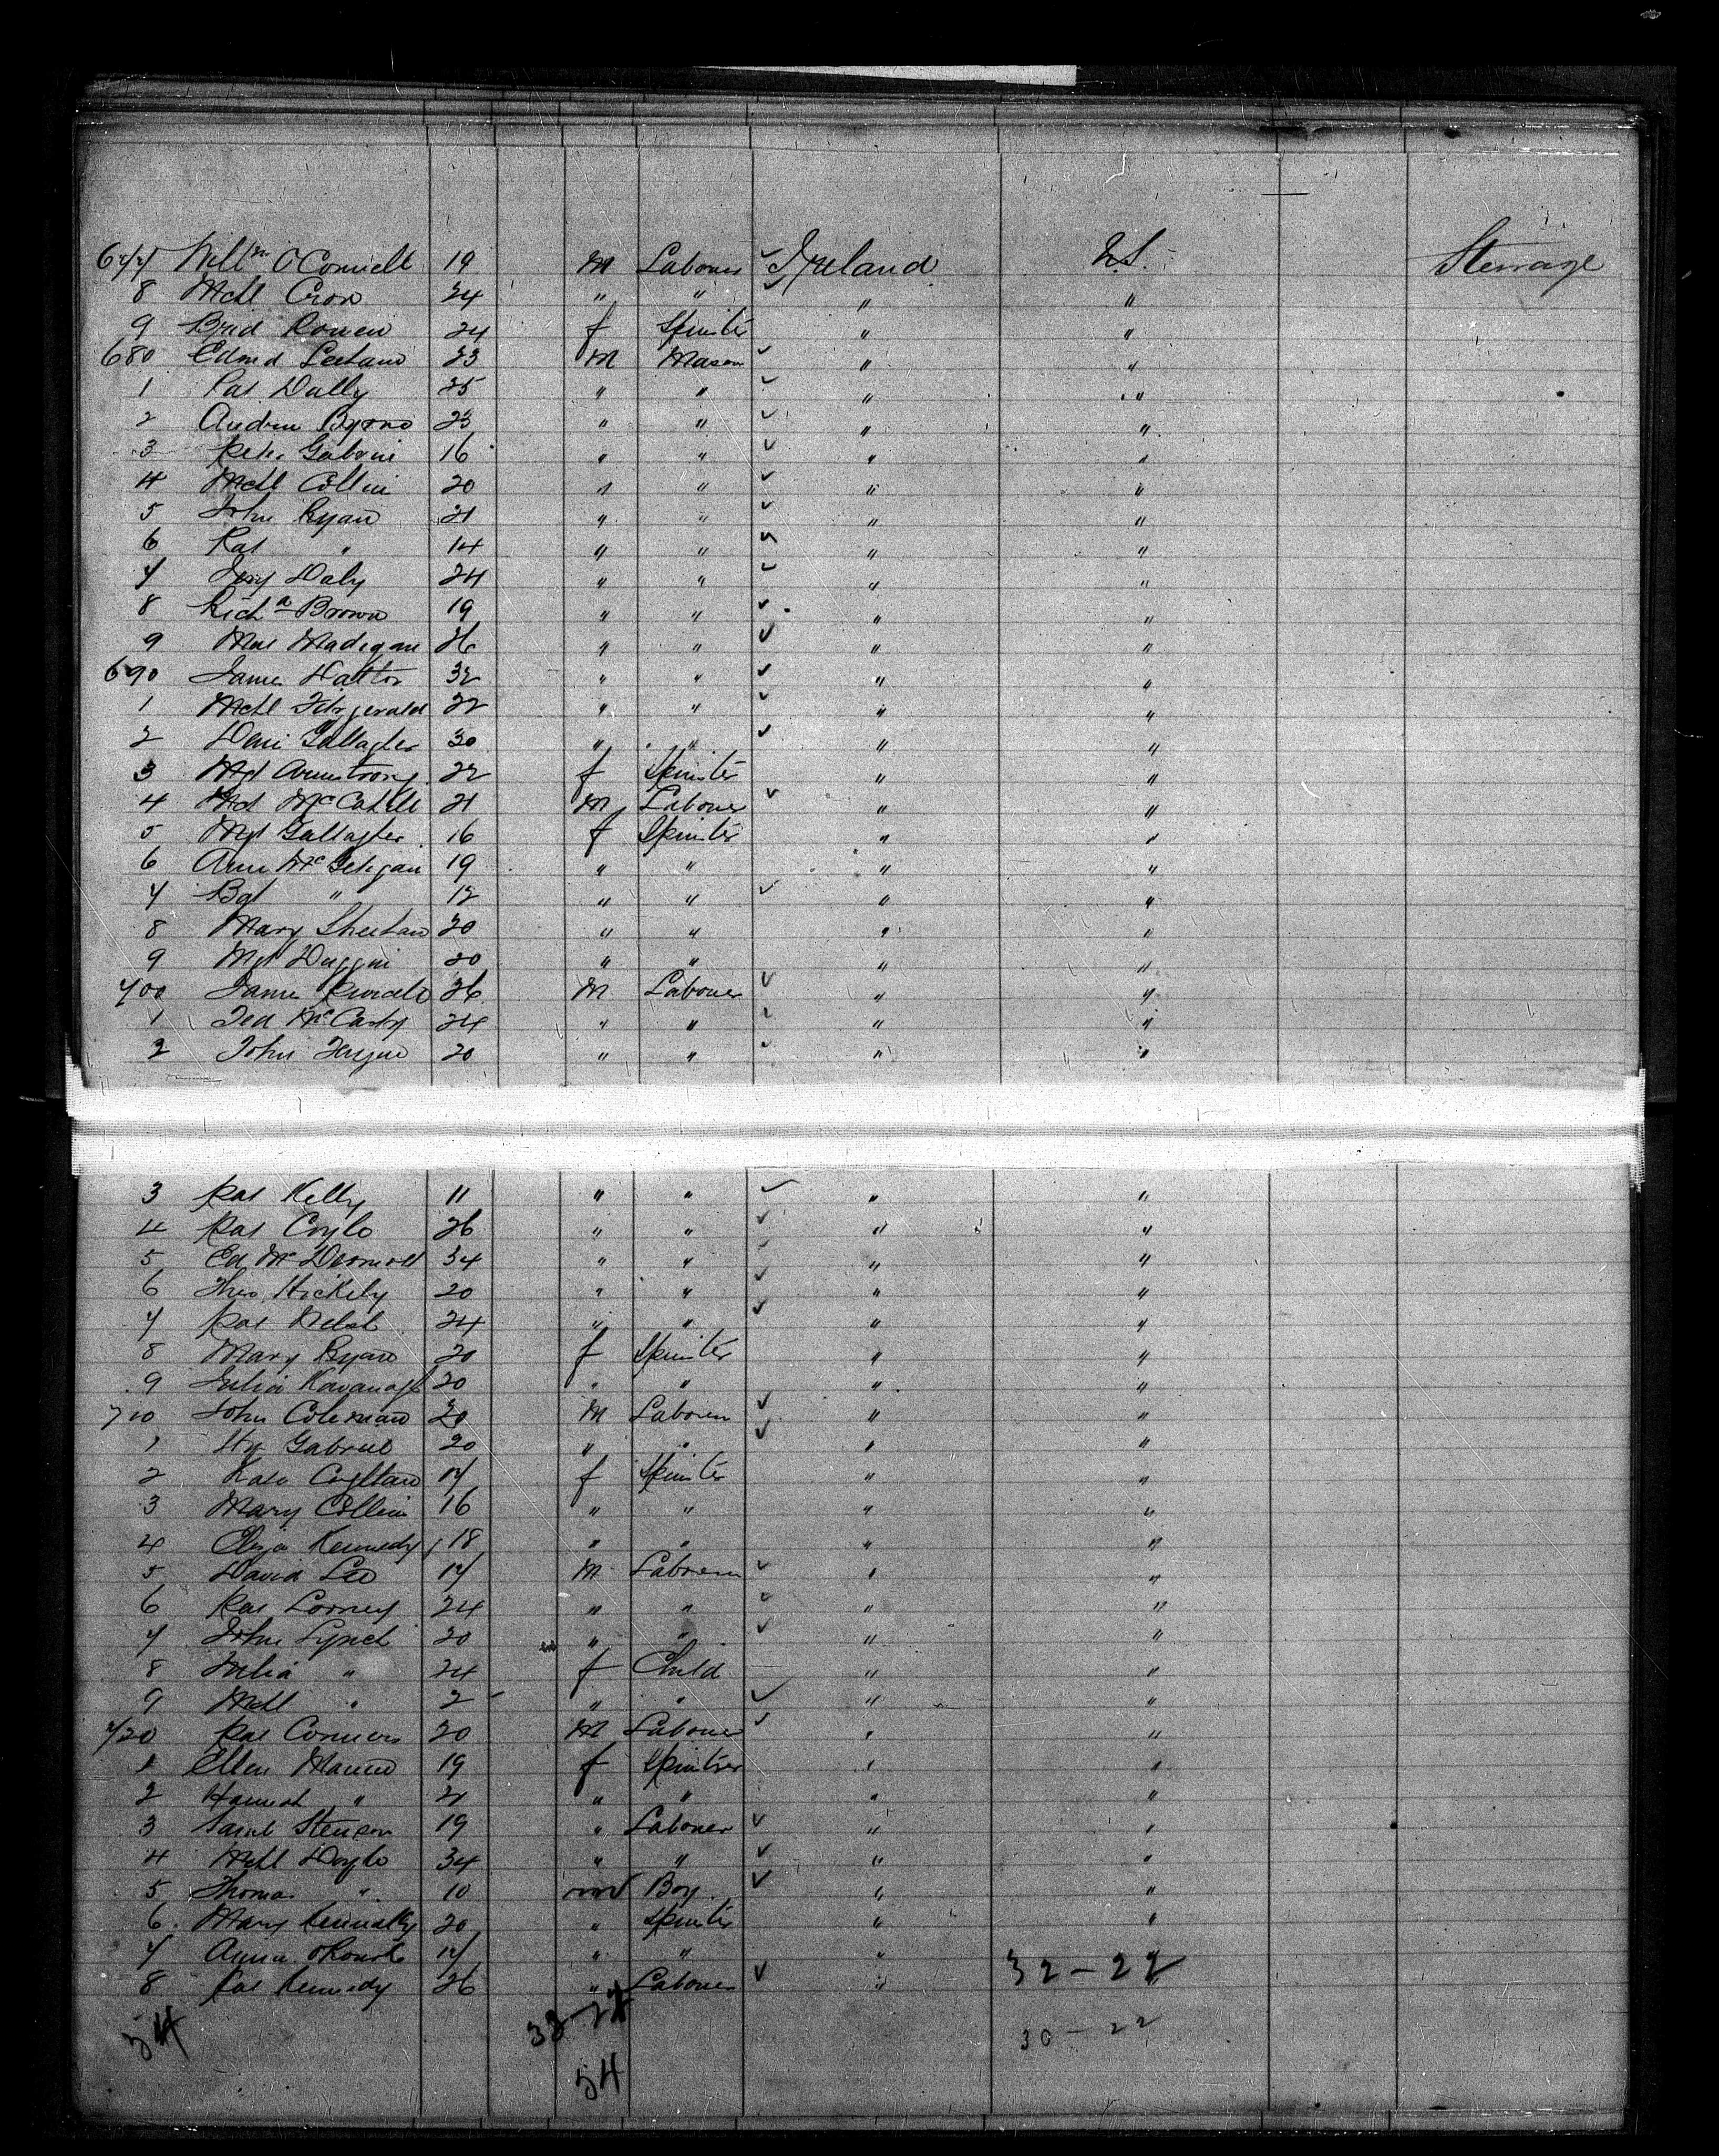 677 Willm O'Connell 19 M Laborer ✓ Ireland U.S. Steerage
8 Mchl Crow 24 " " ✓ " "
9 Brid Rowen 24 f Spinster " "
680 Edmd Leehane 23 M Mason ✓ " "
1 Pat Dally 25 " " ✓ " "
2 Andrew Byrne 23 " " ✓ " "
3 Peter 16 " " ✓ " "
4 Mchl Collin 20 " " ✓ " "
5 John Ryan 21 " " ✓ " "
6 Pat " 14 " " ✓ " "
7 Jery Daly 24 " " ✓ " "
8 Richd Brown 19 " " ✓ " "
9 Madigan 26 " " ✓ " "
690 James Hatton 32 " " ✓ " "
1 Mchl Fitzgerald 22 " " ✓ " "
2 Denis Gallagher 30 " " ✓ " "
3 Mgt Armstrong 22 f Spinster " "
4 McCahill 21 M Laborer ✓ " "
5 Mgt Gallagher 16 f Spinster " "
6 Ann McGetigan 19 " " " "
7 Bgt " 12 " " ✓ " "
8 Mary Sheehan 20 " " " "
9 Mgt Duggin 20 " " " "
700 James 26 M Laborer ✓ " "
1 Ted McCarty 24 " " ✓ " "
2 John 20 " " ✓ " "
3 Pat Kelly 11 " " ✓ " "
4 Pat Coyle 26 " " ✓ " "
5 Ed McDermott 34 " " ✓ " "
6 Thos Hickily 20 " " ✓ " "
7 Pat Welsh 24 " " ✓ " "
8 Mary Ryan 20 f Spinster " "
9 Julia Kavanagh 20 " " " "
710 John Coleman 20 M Laborer ✓ " "
1 Hy Gabriel 20 " " ✓ " "
2 Kate Coghlan 17 f Spinster " "
3 Mary Collin 16 " " " "
4 Eliza Kennedy 18 " " " "
5 David Lee 17 M Laborer ✓ " "
6 Pat Looney 24 " " ✓ " "
7 John Lynch 20 " " ✓ " "
8 Julia " 24 f Child " "
9 Mchl " 2 " " ✓ " "
720 Pat Connors 20 M Laborer ✓ " "
1 Ellen 19 f Spinster " "
2 Hannah " 21 " " " "
3 Saml Stenson 19 " Laborer ✓ " "
4 Mchl Doyle 34 " " ✓ " "
5 Thomas " 10 Boy ✓ " "
6 Mary Kennelly 20 " Spinster " "
7 Anna O'Rourke 17 " " " "
8 Pat Kennedy 26 " Laborer ✓ " "
32-22
54 30-22
54